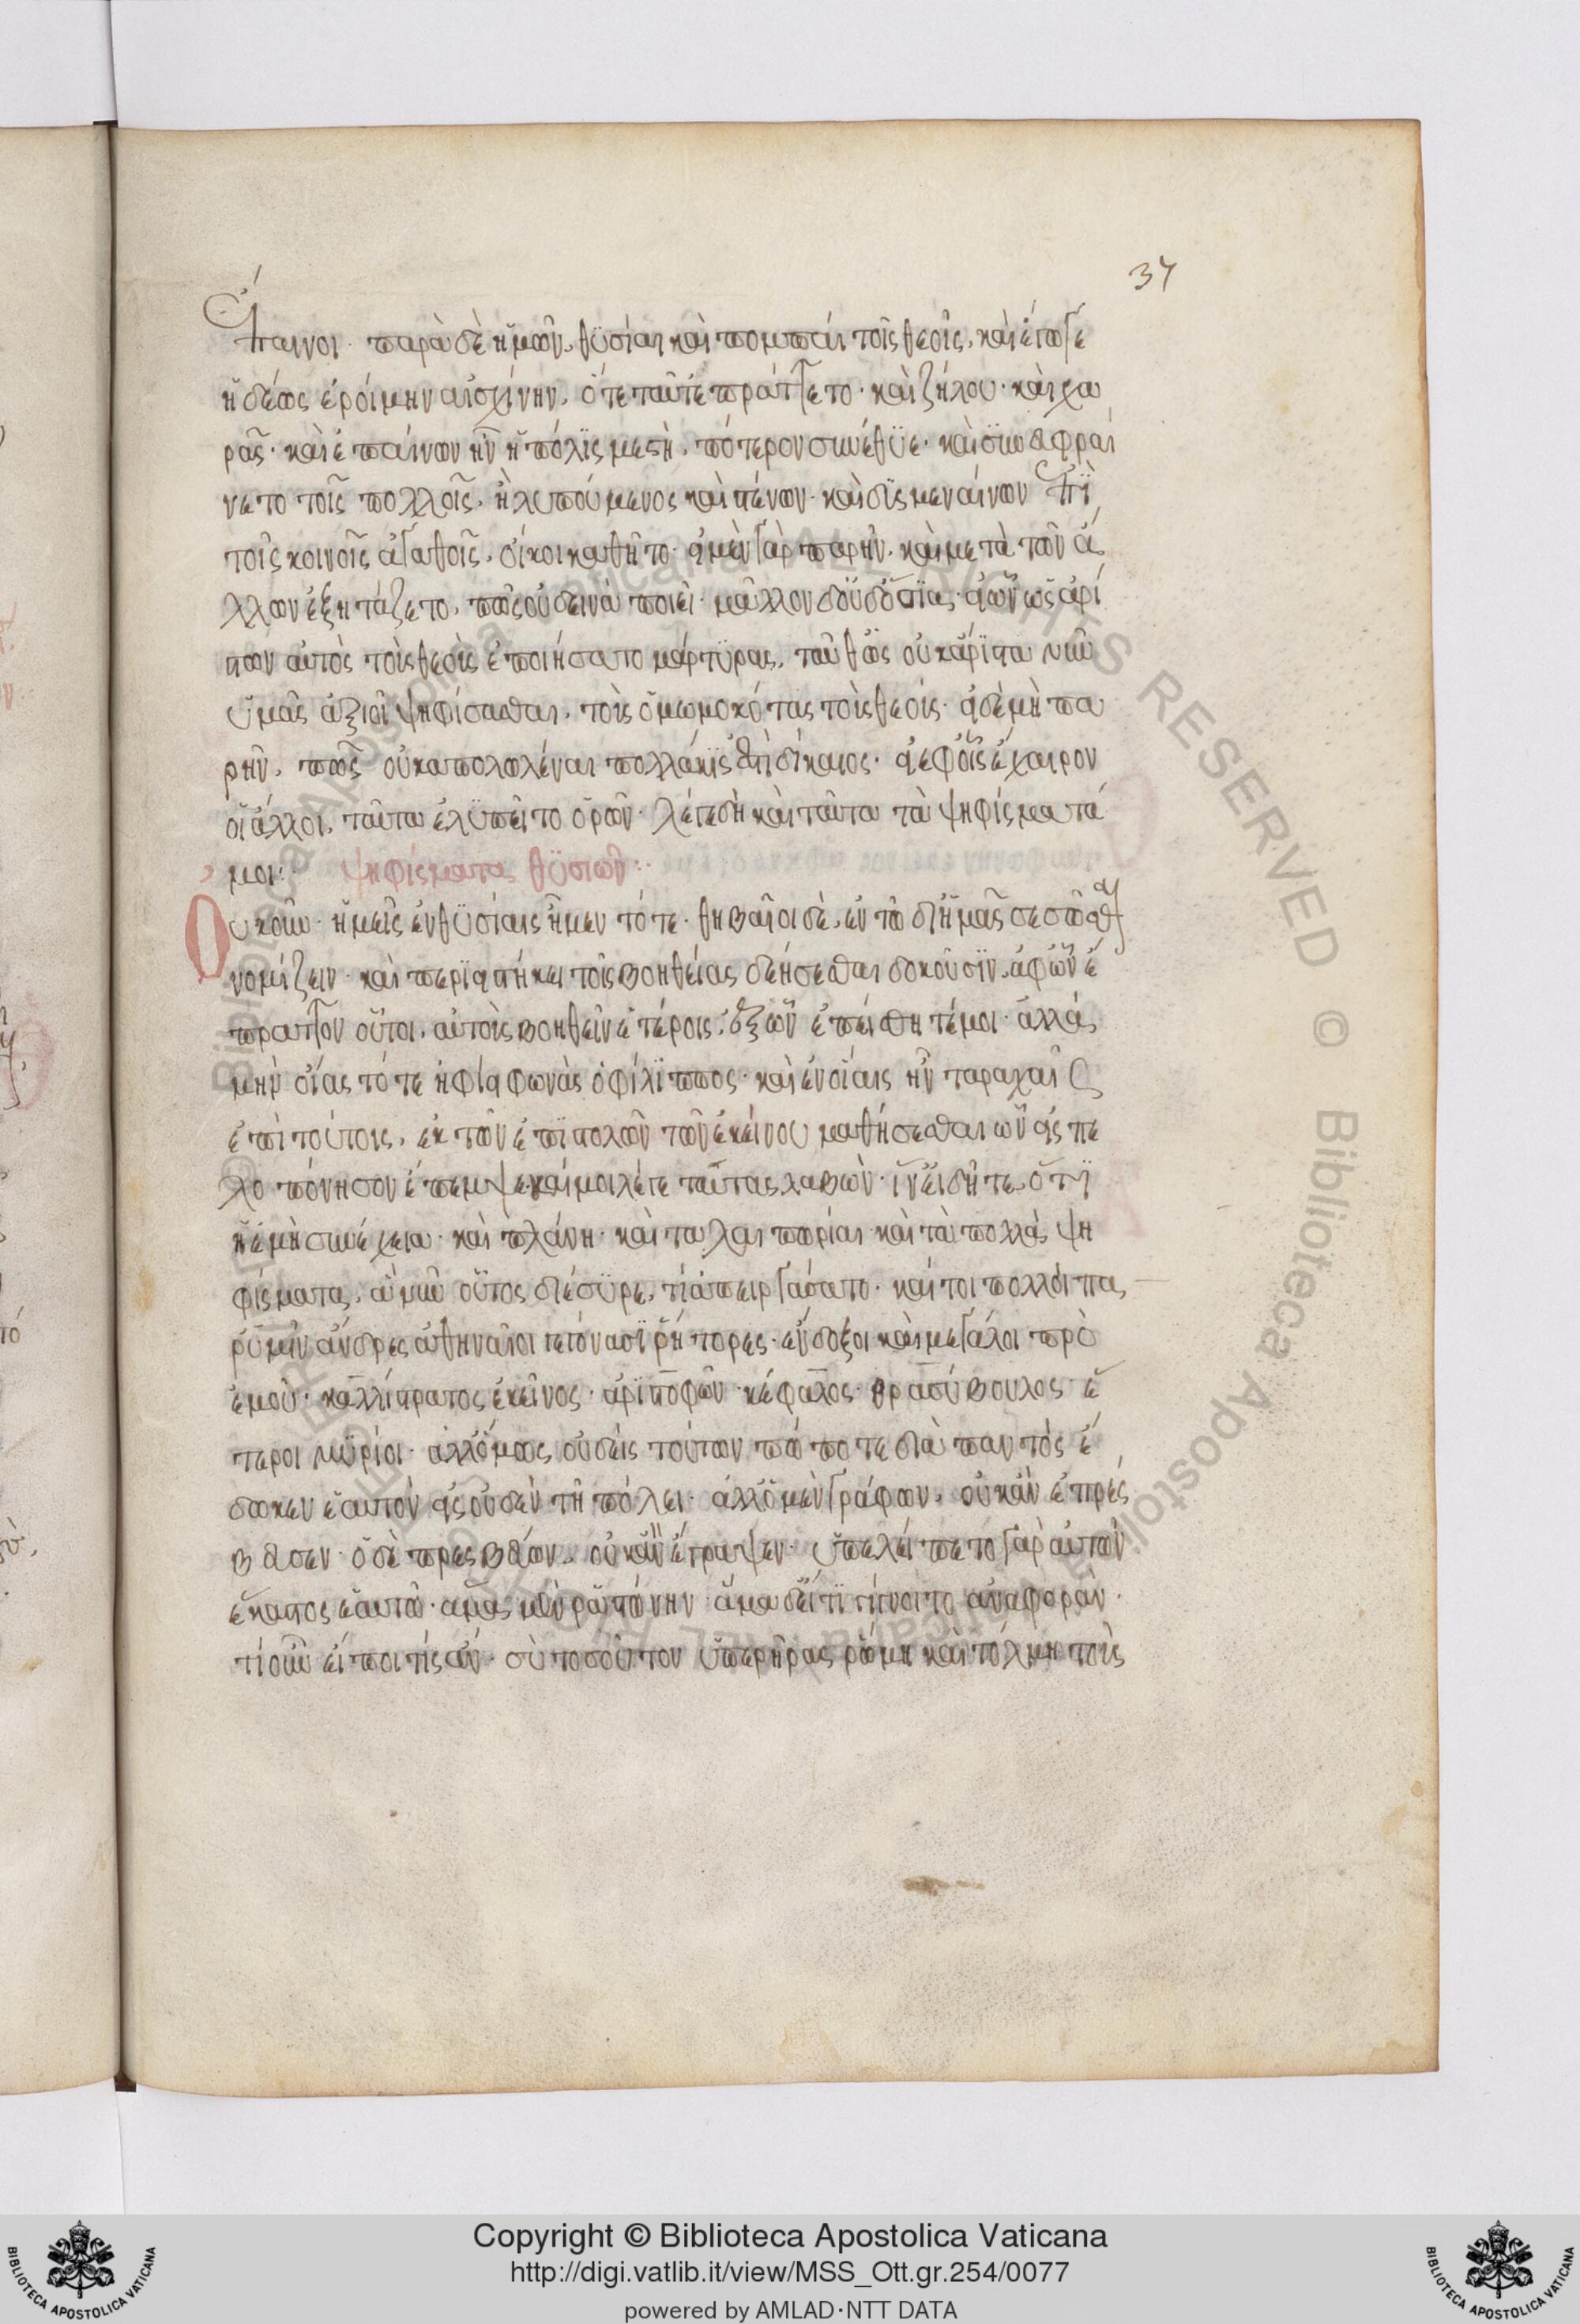 37
ἔπαινοι· παρὰ δὲ ἡμῶν, θυσίαι καὶ πομπαὶ τοῖς θεοῖς, καὶ ἔγωγε
ἡδέως ἐροίμην αἰσχίνην, ὅτε ταῦτ' ἐπράττετο· καὶ ζήλου· καὶ χα
ρᾶς· καὶ ἐπαίνων ἦν ἡ πόλις μεστὴ, πότερον συνέθυε· καὶ συνευφραί
νετο τοῖς πολλοῖς, ἢ λυπούμενος καὶ στένων· καὶ δυσμεναίνων ἐπὶ
τοῖς κοινοῖς ἀγαθοῖς, οἴκοι καθῆτο· εἰ μὲν γὰρ παρῆν, καὶ μετὰ τῶν ἄ
λλων ἐξητάζετο, πῶς οὐ δεινὰ ποιεῖ· μᾶλλον δ' οὐδ' ὅσια· εἰ ὧν ὡς ἀρί
στων αὐτὸς τοὺς θεοὺς ἐποιήσατο μάρτυρας, ταῦθ' ὡς οὐκ ἄριστα νῦν
ὑμᾶς ἀξιοῖ ψηφίσασθαι, τοὺς ὀμωμοκότας τοὺς θεούς· εἰ δὲ μὴ πα
ρῆν, πῶς οὐκ ἀπολωλέναι πολλάκις ἐστὶ δίκαιος· εἰ ἐφ' οἷς ἔχαιρον
οἱ ἄλλοι, ταῦτα ἐλυπεῖτο ὁρῶν· λέγε δὴ καὶ ταῦτα τὰ ψηφίσματά
μοι: ψηφίσματα θυσιῶν:
Οὐκοῦν· ἡμεῖς ἐν θυσίαις ἦμεν τότε· θηβαῖοι δὲ, ἐν τῶ δι' ἡμᾶς σεσῶσθαι
νομίζειν· καὶ περιειστήκει τοῖς βοηθείας δεήσεσθαι δοκοῦσιν, ἀφ' ὧν ἔ
πραττον οὗτοι, αὐτοὺς βοηθεῖν ἑτέροις, ἐξ ὧν ἐπείσθητέ μοι· ἀλλὰ
μὴν οἵας τότε ἠφίει φωνὰς ὁ φίλιππος· καὶ ἐν οἵαις ἦν ταραχαῖς
ἐπὶ τούτοις, ἐκ τῶν ἐπιστολῶν τῶν ἐκείνου μαθήσεσθαι ὧν εἰς πε
λοπόννησον ἔπεμψε· καί μοι λέγε ταύτας λαβὼν· ἵν' εἰδῆτε, ὅτι
ἡ ἐμὴ συνέχεια· καὶ πλάνη· καὶ ταλαιπωρίαι· καὶ τὰ πολλὰ ψη
φίσματα, ἃ νῦν οὗτος διέσυρε, τί ἀπειργάσατο· καί τοι πολλοὶ πα
ρ' ὑμῖν ἄνδρες ἀθηναῖοι γεγόνασι ῥήτορες· ἔνδοξοι καὶ μεγάλοι πρὸ
ἐμοῦ· καλλίστρατος ἐκεῖνος· ἀριστοφῶν· κέφαλος· θρασύβουλος· ἕ
τεροι μυρίοι· ἀλλ' ὅμως οὐδεὶς τούτων πώποτε διὰ παντὸς ἔ
δωκεν ἑαυτὸν εἰς οὐδὲν τῆ πόλει· ἀλλ' ὁ μὲν γράφων, οὐκ ἂν ἐπρέσ
βευσεν· ὁ δὲ πρεσβεύων, οὐκ ἂν ἔγραψεν· ὑπελείπετο γὰρ αὐτῶν
ἕκαστος ἑαυτῶ· ἅμα μὲν ῥαστώνην· ἅμα δ' εἴ τι γίγνοιτο ἀναφοράν·
τί οὖν εἴποι τίς ἄν· σὺ τοσοῦτον ὑπερῆρας ῥώμη καὶ τόλμη τοὺς
Copyright © Biblioteca Apostolica Vaticana
http://digi.vatlib.it/view/MSS_Ott.gr.254/0077
powered by AMLAD·NTT DATA